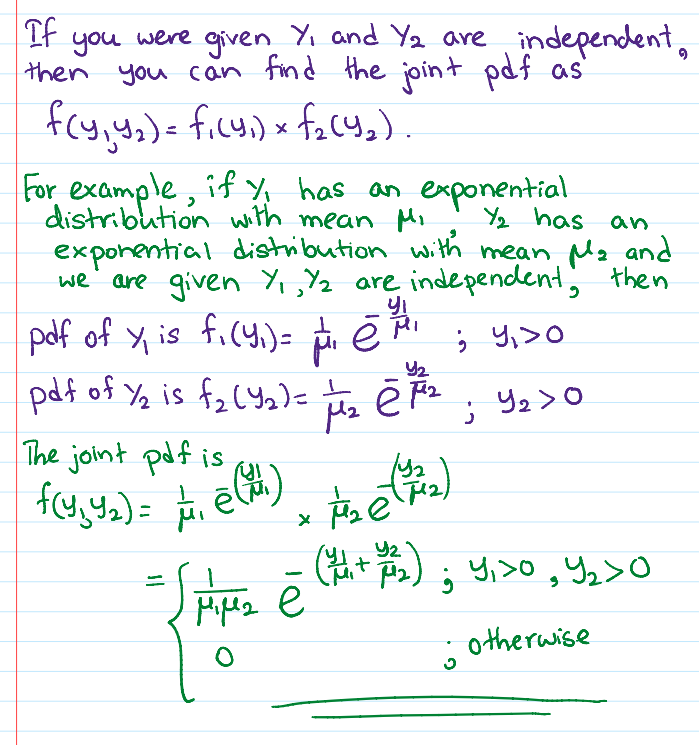 If you were given Y₁ and Y₂ are independent,
then you can find the joint pdf as
f(y₁,y₂) = f₁(y₁) × f₂(y₂).
For example, if Y₁ has an exponential
distribution with mean μ₁, Y₂ has an
exponential distribution with mean μ₂ and
we are given Y₁,Y₂ are independent, then
pdf of Y₁ is f₁(y₁) = 1/μ₁ e^(-y₁/μ₁) ; y₁>0
pdf of Y₂ is f₂(y₂) = 1/μ₂ e^(-y₂/μ₂) ; y₂>0
The joint pdf is
f(y₁,y₂) = 1/μ₁ e^-(y₁/μ₁) × 1/μ₂ e^-(y₂/μ₂)
= { 1/(μ₁μ₂) e^-(y₁/μ₁ + y₂/μ₂) ; y₁>0, y₂>0
0 ; otherwise